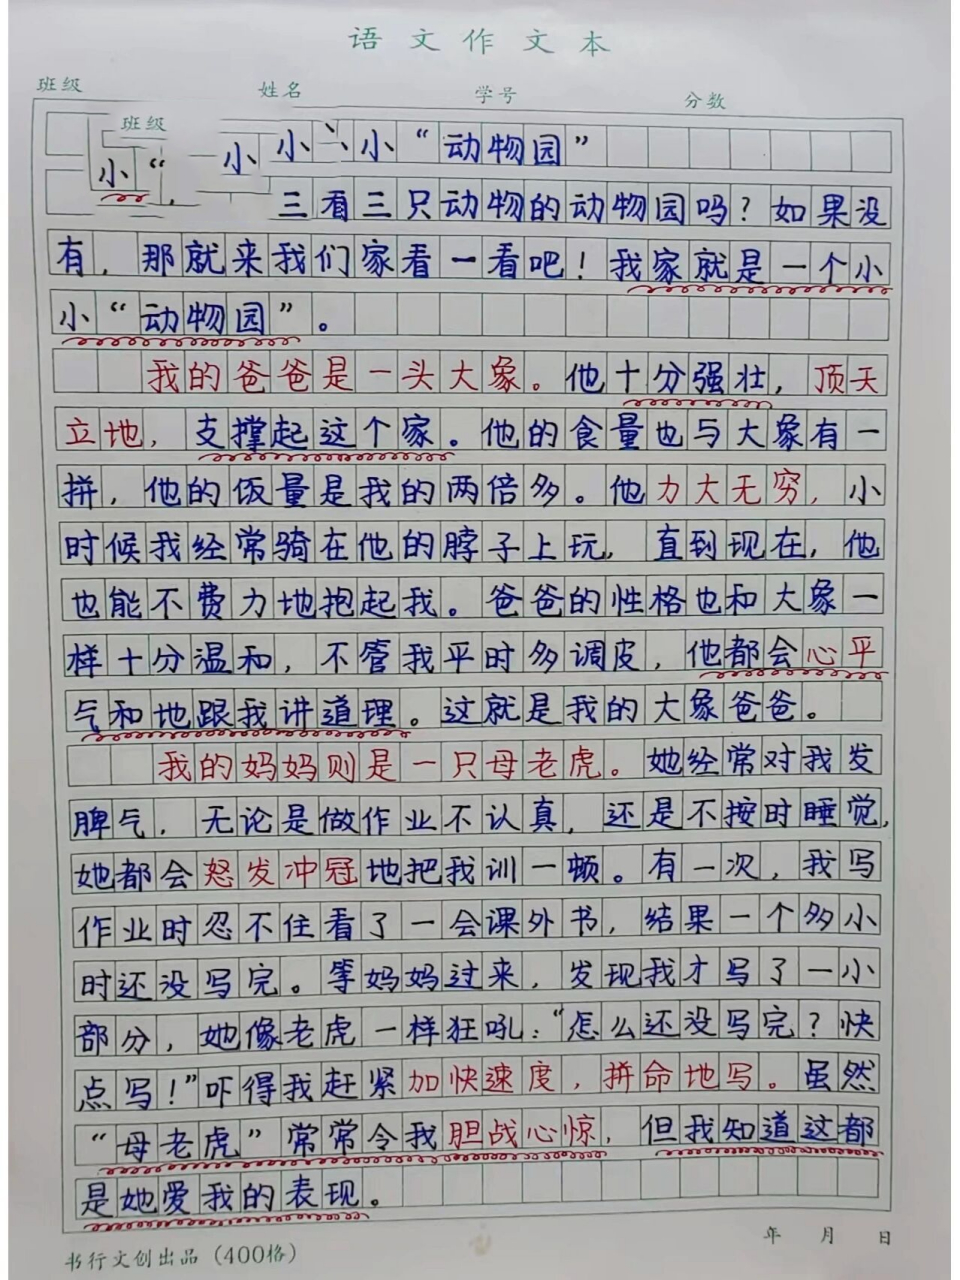 语文作文本
班级 姓名 学号 分数
班级
小 小、小“动物园”
小“
三看三只动物的动物园吗？如果没
有，那就来我们家看一看吧！我家就是一个小
小“动物园”。
我的爸爸是一头大象。他十分强壮，顶天
立地，支撑起这个家。他的食量也与大象有一
拼，他的饭量是我的两倍多。他力大无穷，小
时候我经常骑在他的脖子上玩，直到现在，他
也能不费力地抱起我。爸爸的性格也和大象一
样十分温和，不管我平时多调皮，他都会心平
气和地跟我讲道理。这就是我的大象爸爸。
我的妈妈则是一只母老虎。她经常对我发
脾气，无论是做作业不认真，还是不按时睡觉，
她都会怒发冲冠地把我训一顿。有一次，我写
作业时忍不住看了一会课外书，结果一个多小
时还没写完。等妈妈过来，发现我才写了一小
部分，她像老虎一样狂吼：“怎么还没写完？快
点写！”吓得我赶紧加快速度，拼命地写。虽然
“母老虎”常常令我胆战心惊，但我知道这都
是她爱我的表现。
年 月 日
书行文创出品（400格）